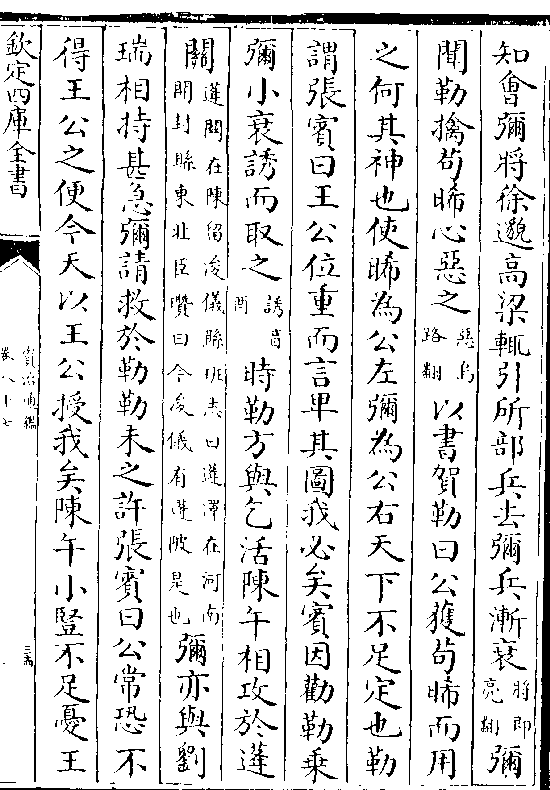 知會彌將徐邈高梁輒引所部兵去彌兵漸衰將即亮翻彌
聞勒擒苟晞心惡之惡烏路翻以書賀勒曰公獲苟晞而用
之何其神也使晞為公左彌為公右天下不足定也勒
謂張賓曰王公位重而言卑其圖我必矣賓因勸勒乗
彌小衰誘而取之誘音酉時勒方與乞活陳午相攻於蓬
關蓬關在陳留浚儀縣班志曰蓬澤在河南開封縣東北臣瓚曰今浚儀有蓬陂是也彌亦與劉
瑞相持甚急彌請救於勒勒未之許張賓曰公常恐不
得王公之便今天以王公授我矣陳午小豎不足憂王
欽定四庫全書
資治通鑑
卷八十七